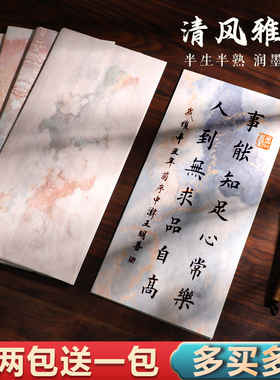 清风雅
半生半熟 润墨
事能知足心常樂
人到無求品自高
辛丑年
两包送一包
多买多